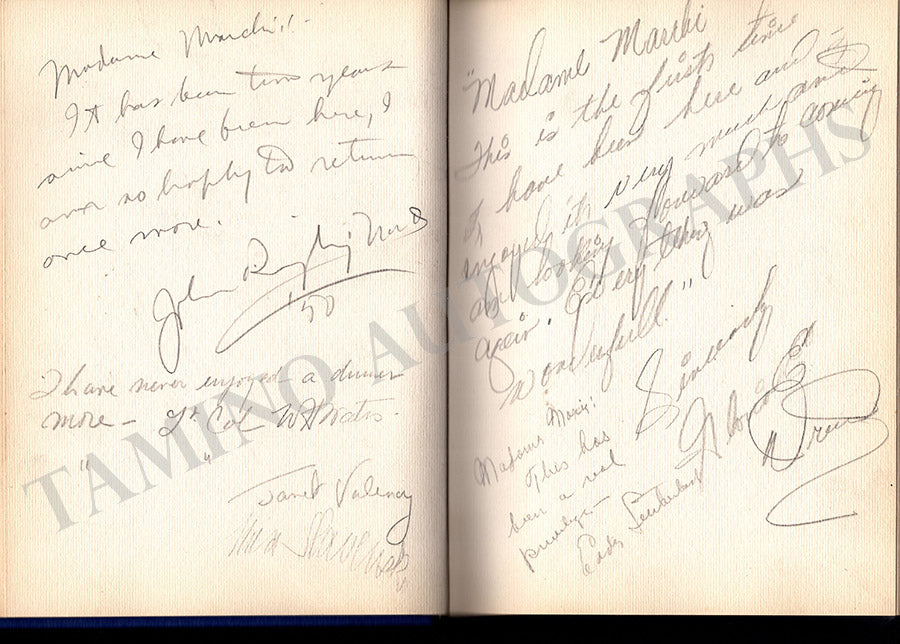 Madame Marchi:-
It has been two years
since I have been here, I
am so happy to return
once more.
John Ringling North
'50
I have never enjoyed a dinner
more - Lt Col W H Waters.
" "
Janet Valency
"Madame Marchi
This is the first time
I have been here and
enjoyed it very much and
am looking forward to coming
again. Everything was
wonderfull."
Sincerely
Madame Marchi:
This has
been a real
privilege
TAMINO AUTOGRAPHS